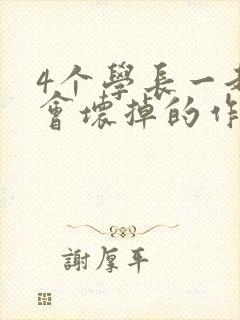 4个學長一
會壞掉的作
謝厚平